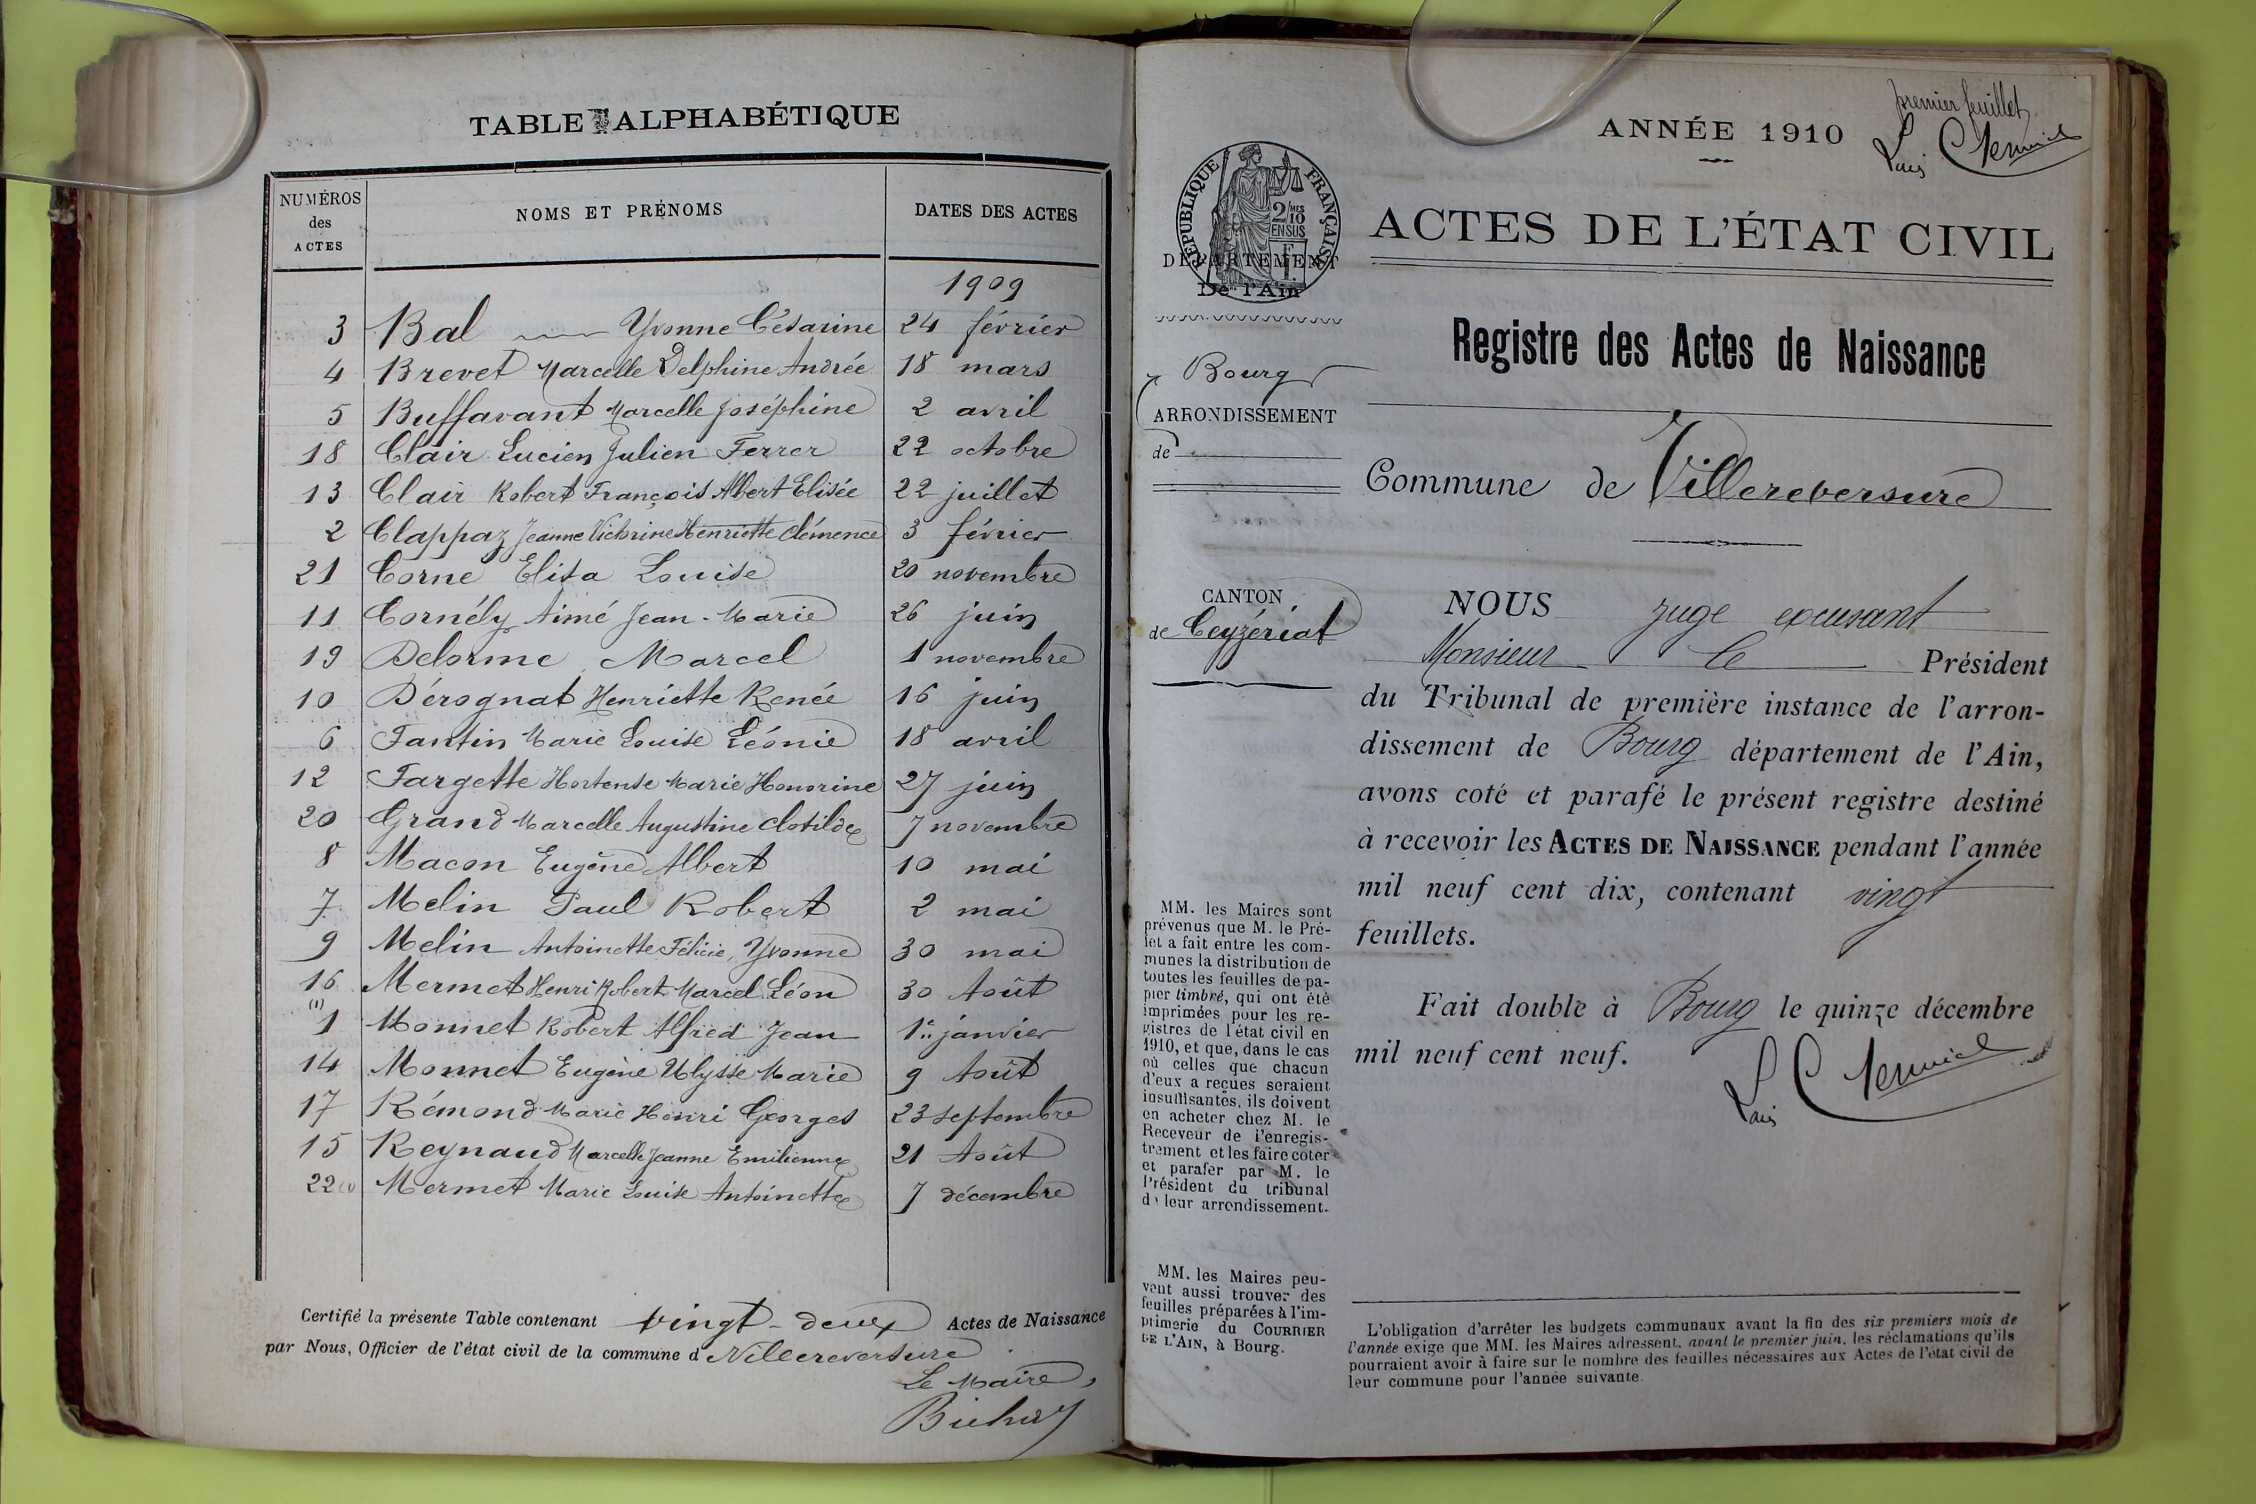 TABLE ALPHABÉTIQUE
NUMÉROS des ACTES
NOMS ET PRÉNOMS
DATES DES ACTES
1909
3 Bal Yvonne Césarine 24 février
4 Brevet Marcelle Delphine Andrée 18 mars
5 Buffavant Marcelle Joséphine 2 avril
18 Clair Lucien Julien Ferrer 22 octobre
13 Clair Robert François Albert Elisée 22 juillet
2 Clappaz Jeanne Victorine Henriette Clémence 3 février
21 Corne Elisa Louise 20 novembre
11 Cornély Aimé Jean-Marie 26 juin
19 Delorme Marcel 1 novembre
10 Dérognat Henriette Renée 16 juin
6 Fantin Marie Louise Léonie 18 avril
12 Fargette Hortense Marie Honorine 27 juin
20 Grand Marcelle Augustine Clotilde 7 novembre
8 Macon Eugène Albert 10 mai
7 Melin Paul Robert 2 mai
9 Melin Antoinette Félicie, Yvonne 30 mai
16 Mermet Henri Robert Marcel Léon 30 Août
(1)
1 Monnet Robert Alfred Jean 1er janvier
14 Monnet Eugène Ulysse Marie 9 Août
17 Rémond Marie Henri Georges 23 septembre
15 Reynaud Marcelle Jeanne Emilienne 21 Août
22 (1) Mermet Marie Louise Antoinette 7 décembre
Certifié la présente Table contenant vingt-deux Actes de Naissance
par Nous, Officier de l'état civil de la commune d Villereversure
Le Maire,
premier feuillet
ANNÉE 1910
RÉPUBLIQUE FRANÇAISE
2/10 MES
EN SUS
ACTES DE L'ÉTAT CIVIL
DÉPARTEMENT
De l'Ain
Registre des Actes de Naissance
Bourg
ARRONDISSEMENT
de
Commune de Villereversure
CANTON
de Ceyzériat
NOUS juge excusant
Monsieur le Président
du Tribunal de première instance de l'arron-
dissement de Bourg département de l'Ain,
avons coté et parafé le présent registre destiné
à recevoir les ACTES DE NAISSANCE pendant l'année
mil neuf cent dix, contenant vingt
feuillets.
Fait double à Bourg le quinze décembre
mil neuf cent neuf.
MM. les Maires sont
prévenus que M. le Pré-
fet a fait entre les com-
munes la distribution de
toutes les feuilles de pa-
pier timbré, qui ont été
imprimées pour les re-
gistres de l'état civil en
1910, et que, dans le cas
où celles que chacun
d'eux a reçues seraient
insuffisantes, ils doivent
en acheter chez M. le
Receveur de l'enregis-
trement et les faire coter
et parafer par M. le
Président du tribunal
de leur arrondissement.
MM. les Maires peu-
vent aussi trouver des
feuilles préparées à l'im-
primerie du COURRIER
DE L'AIN, à Bourg.
L'obligation d'arrêter les budgets communaux avant la fin des six premiers mois de
l'année exige que MM. les Maires adressent, avant le premier juin, les réclamations qu'ils
pourraient avoir à faire sur le nombre des feuilles nécessaires aux Actes de l'état civil de
leur commune pour l'année suivante.